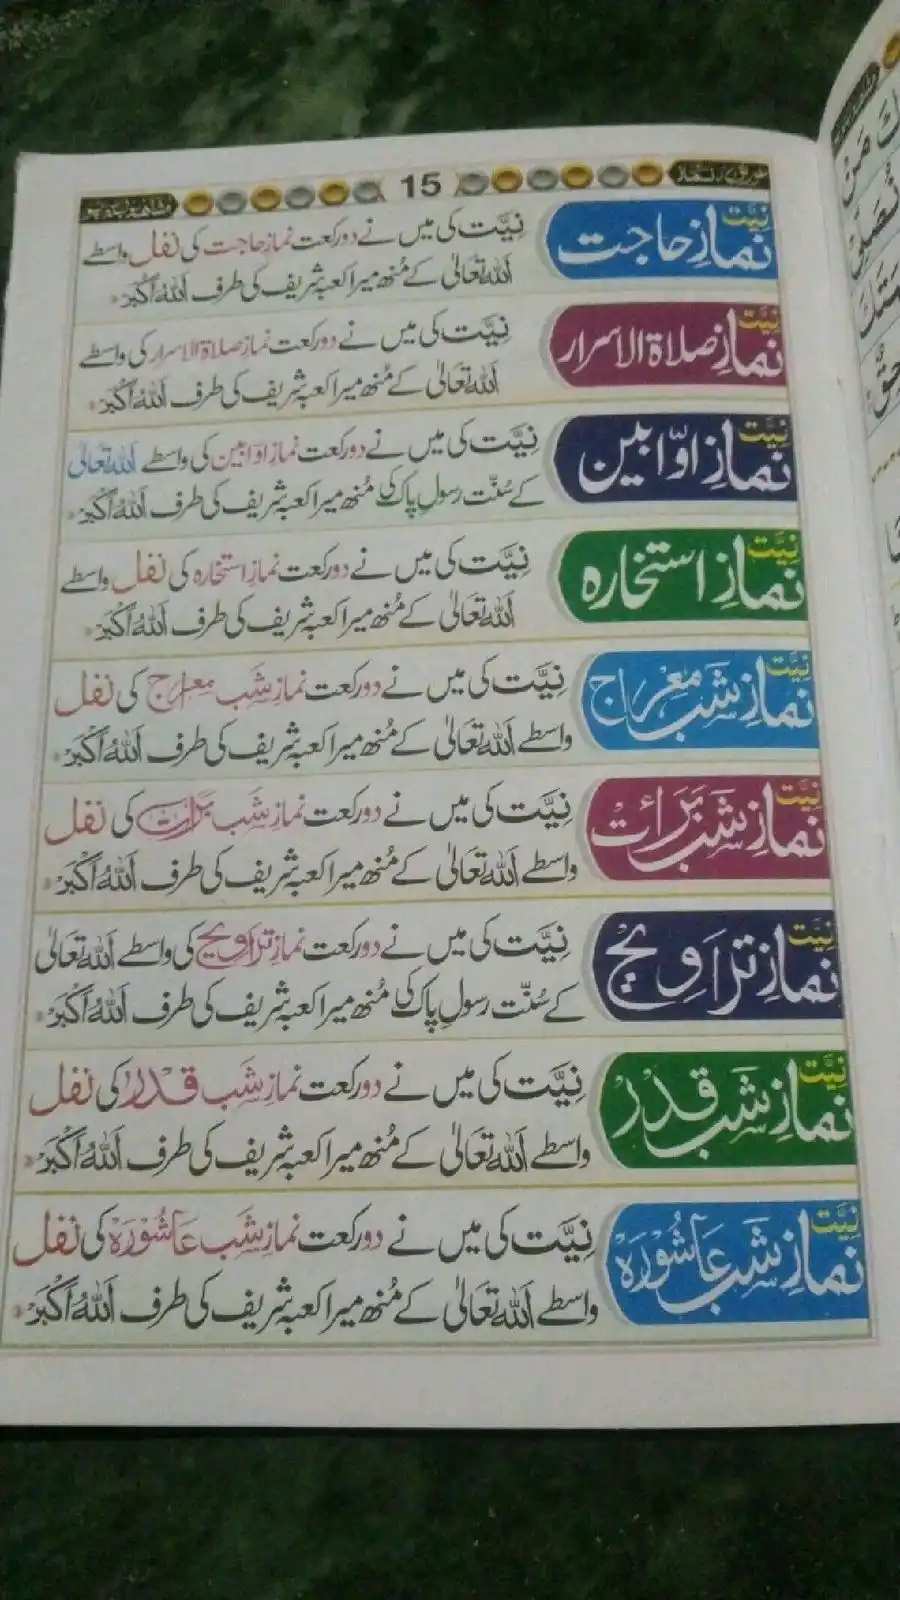 طریقۂ نماز
15
نیّت
نمازِ حاجت
نِیَّت کی میں نے دو رکعت نمازِ حاجت کی نفل واسطے
اللہ تَعَالیٰ کے مُنھ میرا کعبہ شریف کی طرف اَللہُ اَکْبَرْ
نیّت
نمازِ صلاۃ الاسرار
نِیَّت کی میں نے دو رکعت نمازِ صلاۃ الاسرار کی واسطے
اللہ تَعَالیٰ کے مُنھ میرا کعبہ شریف کی طرف اَللہُ اَکْبَرْ
نیّت
نمازِ اوّابین
نِیَّت کی میں نے دو رکعت نمازِ اوّابین کی واسطے اللہ تَعَالیٰ
کے سُنّت رسولِ پاک کی مُنھ میرا کعبہ شریف کی طرف اَللہُ اَکْبَرْ
نیّت
نمازِ استخارہ
نِیَّت کی میں نے دو رکعت نمازِ استخارہ کی نفل واسطے
اللہ تَعَالیٰ کے مُنھ میرا کعبہ شریف کی طرف اَللہُ اَکْبَرْ
نیّت
نمازِ شَبِ معراج
نِیَّت کی میں نے دو رکعت نمازِ شَبِ معراج کی نفل
واسطے اللہ تَعَالیٰ کے مُنھ میرا کعبہ شریف کی طرف اَللہُ اَکْبَرْ
نیّت
نمازِ شَبِ بَرَائت
نِیَّت کی میں نے دو رکعت نمازِ شَبِ بَرَائت کی نفل
واسطے اللہ تَعَالیٰ کے مُنھ میرا کعبہ شریف کی طرف اَللہُ اَکْبَرْ
نیّت
نمازِ تَرَاوِیح
نِیَّت کی میں نے دو رکعت نمازِ تَرَاوِیح کی واسطے اللہ تَعَالیٰ
کے سُنّت رسولِ پاک کی مُنھ میرا کعبہ شریف کی طرف اَللہُ اَکْبَرْ
نیّت
نمازِ شَبِ قَدْرْ
نِیَّت کی میں نے دو رکعت نمازِ شَبِ قَدْرْ کی نفل
واسطے اللہ تَعَالیٰ کے مُنھ میرا کعبہ شریف کی طرف اَللہُ اَکْبَرْ
نیّت
نمازِ شَبِ عَاشُوْرَہْ
نِیَّت کی میں نے دو رکعت نمازِ شَبِ عَاشُوْرَہْ کی نفل
واسطے اللہ تَعَالیٰ کے مُنھ میرا کعبہ شریف کی طرف اَللہُ اَکْبَرْ